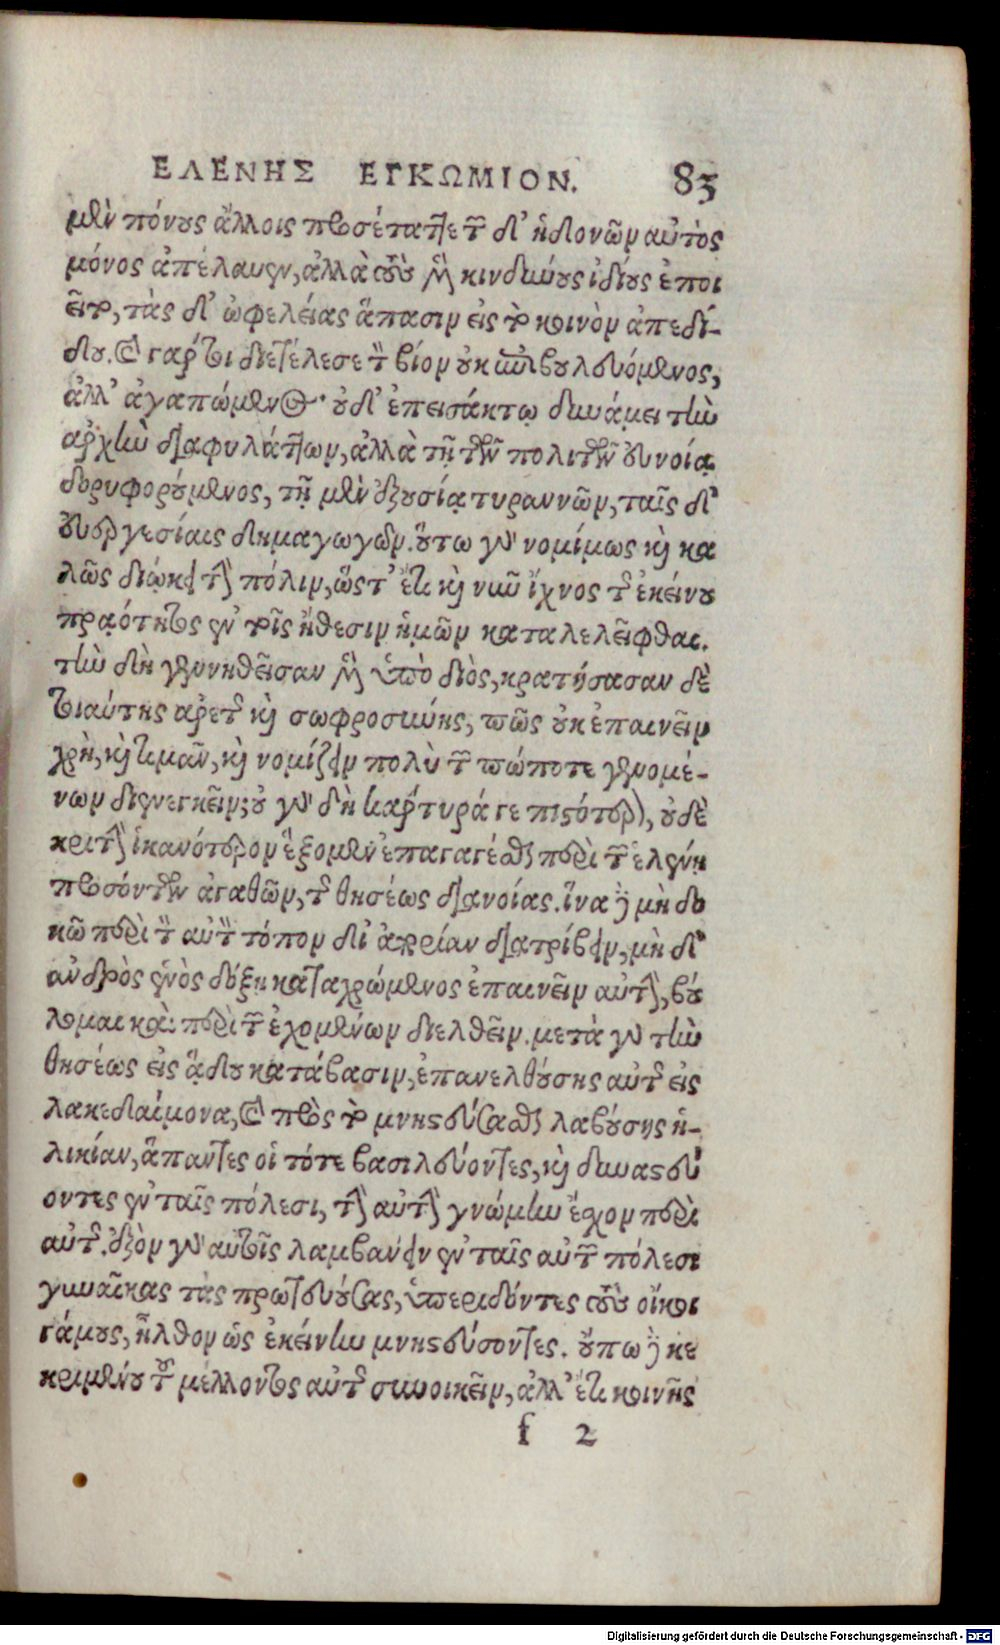 ΕΛΕΝΗΣ ΕΓΚΩΜΙΟΝ. 83
μὲν πόνους ἄλλοις προσέταττε τῶν δ' ἡδονῶν αὐτὸς
μόνος ἀπέλαυεν, ἀλλὰ τοὺς μὲν κινδύνους ἰδίους ἐποι
εῖτο, τὰς δ' ὠφελείας ἅπασιν εἰς τὸ κοινὸν ἀπεδί-
δου. καὶ γάρ τοι διετέλεσε τὸν βίον οὐκ ἐπιβουλευόμενος,
ἀλλ' ἀγαπώμενος· οὐδ' ἐπεισάκτῳ δυνάμει τὴν
ἀρχὴν διαφυλάττων, ἀλλὰ τῇ τῶν πολιτῶν εὐνοίᾳ
δορυφορούμενος, τῇ μὲν ἐξουσίᾳ τυραννῶν, ταῖς δ'
εὐεργεσίαις δημαγωγῶν. οὕτω γὰρ νομίμως καὶ κα
λῶς διῴκει τὴν πόλιν, ὥστ' ἔτι καὶ νῦν ἴχνος τῆς ἐκείνου
πρᾳότητος ἐν τοῖς ἤθεσιν ἡμῶν καταλελεῖφθαι.
τὴν δὴ γεννηθεῖσαν μὲν ὑπὸ διὸς, κρατήσασαν δὲ
τοιαύτης ἀρετῆς καὶ σωφροσύνης, πῶς οὐκ ἐπαινεῖν
χρὴ, καὶ τιμᾶν, καὶ νομίζειν πολὺ τῶν πώποτε γενομέ-
νων διενεγκεῖν; οὐ γὰρ δὴ μάρτυρά γε πιστότερον, οὐδὲ
κριτὴν ἱκανότερον ἕξομεν ἐπαγαγέσθαι περὶ τῶν ἑλένῃ
προσόντων ἀγαθῶν, τῆς θησέως διανοίας. ἵνα δὲ μὴ δο
κῶ περὶ τὸν αὐτὸν τόπον δι' ἀπορίαν διατρίβειν, μὴ δ'
ἀνδρὸς ἑνὸς δόξῃ καταχρώμενος ἐπαινεῖν αὐτὴν, βού
λομαι καὶ περὶ τῶν ἐχομένων διελθεῖν. μετὰ γὰρ τὴν
θησέως εἰς ᾅδου κατάβασιν, ἐπανελθούσης αὐτῆς εἰς
λακεδαίμονα, καὶ πρὸς τὸ μνηστεύεσθαι λαβούσης ἡ-
λικίαν, ἅπαντες οἱ τότε βασιλεύοντες, καὶ δυναστεύ
οντες ἐν ταῖς πόλεσι, τὴν αὐτὴν γνώμην ἔσχον περὶ
αὐτῆς. ἐξὸν γὰρ αὐτοῖς λαμβάνειν ἐν ταῖς αὐτῶν πόλεσι
γυναῖκας τὰς πρωτευούσας, ὑπεριδόντες τοὺς οἴκοι
γάμους, ἦλθον ὡς ἐκείνην μνηστεύσοντες. οὔπω δὲ κε
κριμένου τοῦ μέλλοντος αὐτῇ συνοικεῖν, ἀλλ' ἔτι κοινῆς
f 2
Digitalisierung gefördert durch die Deutsche Forschungsgemeinschaft - DFG